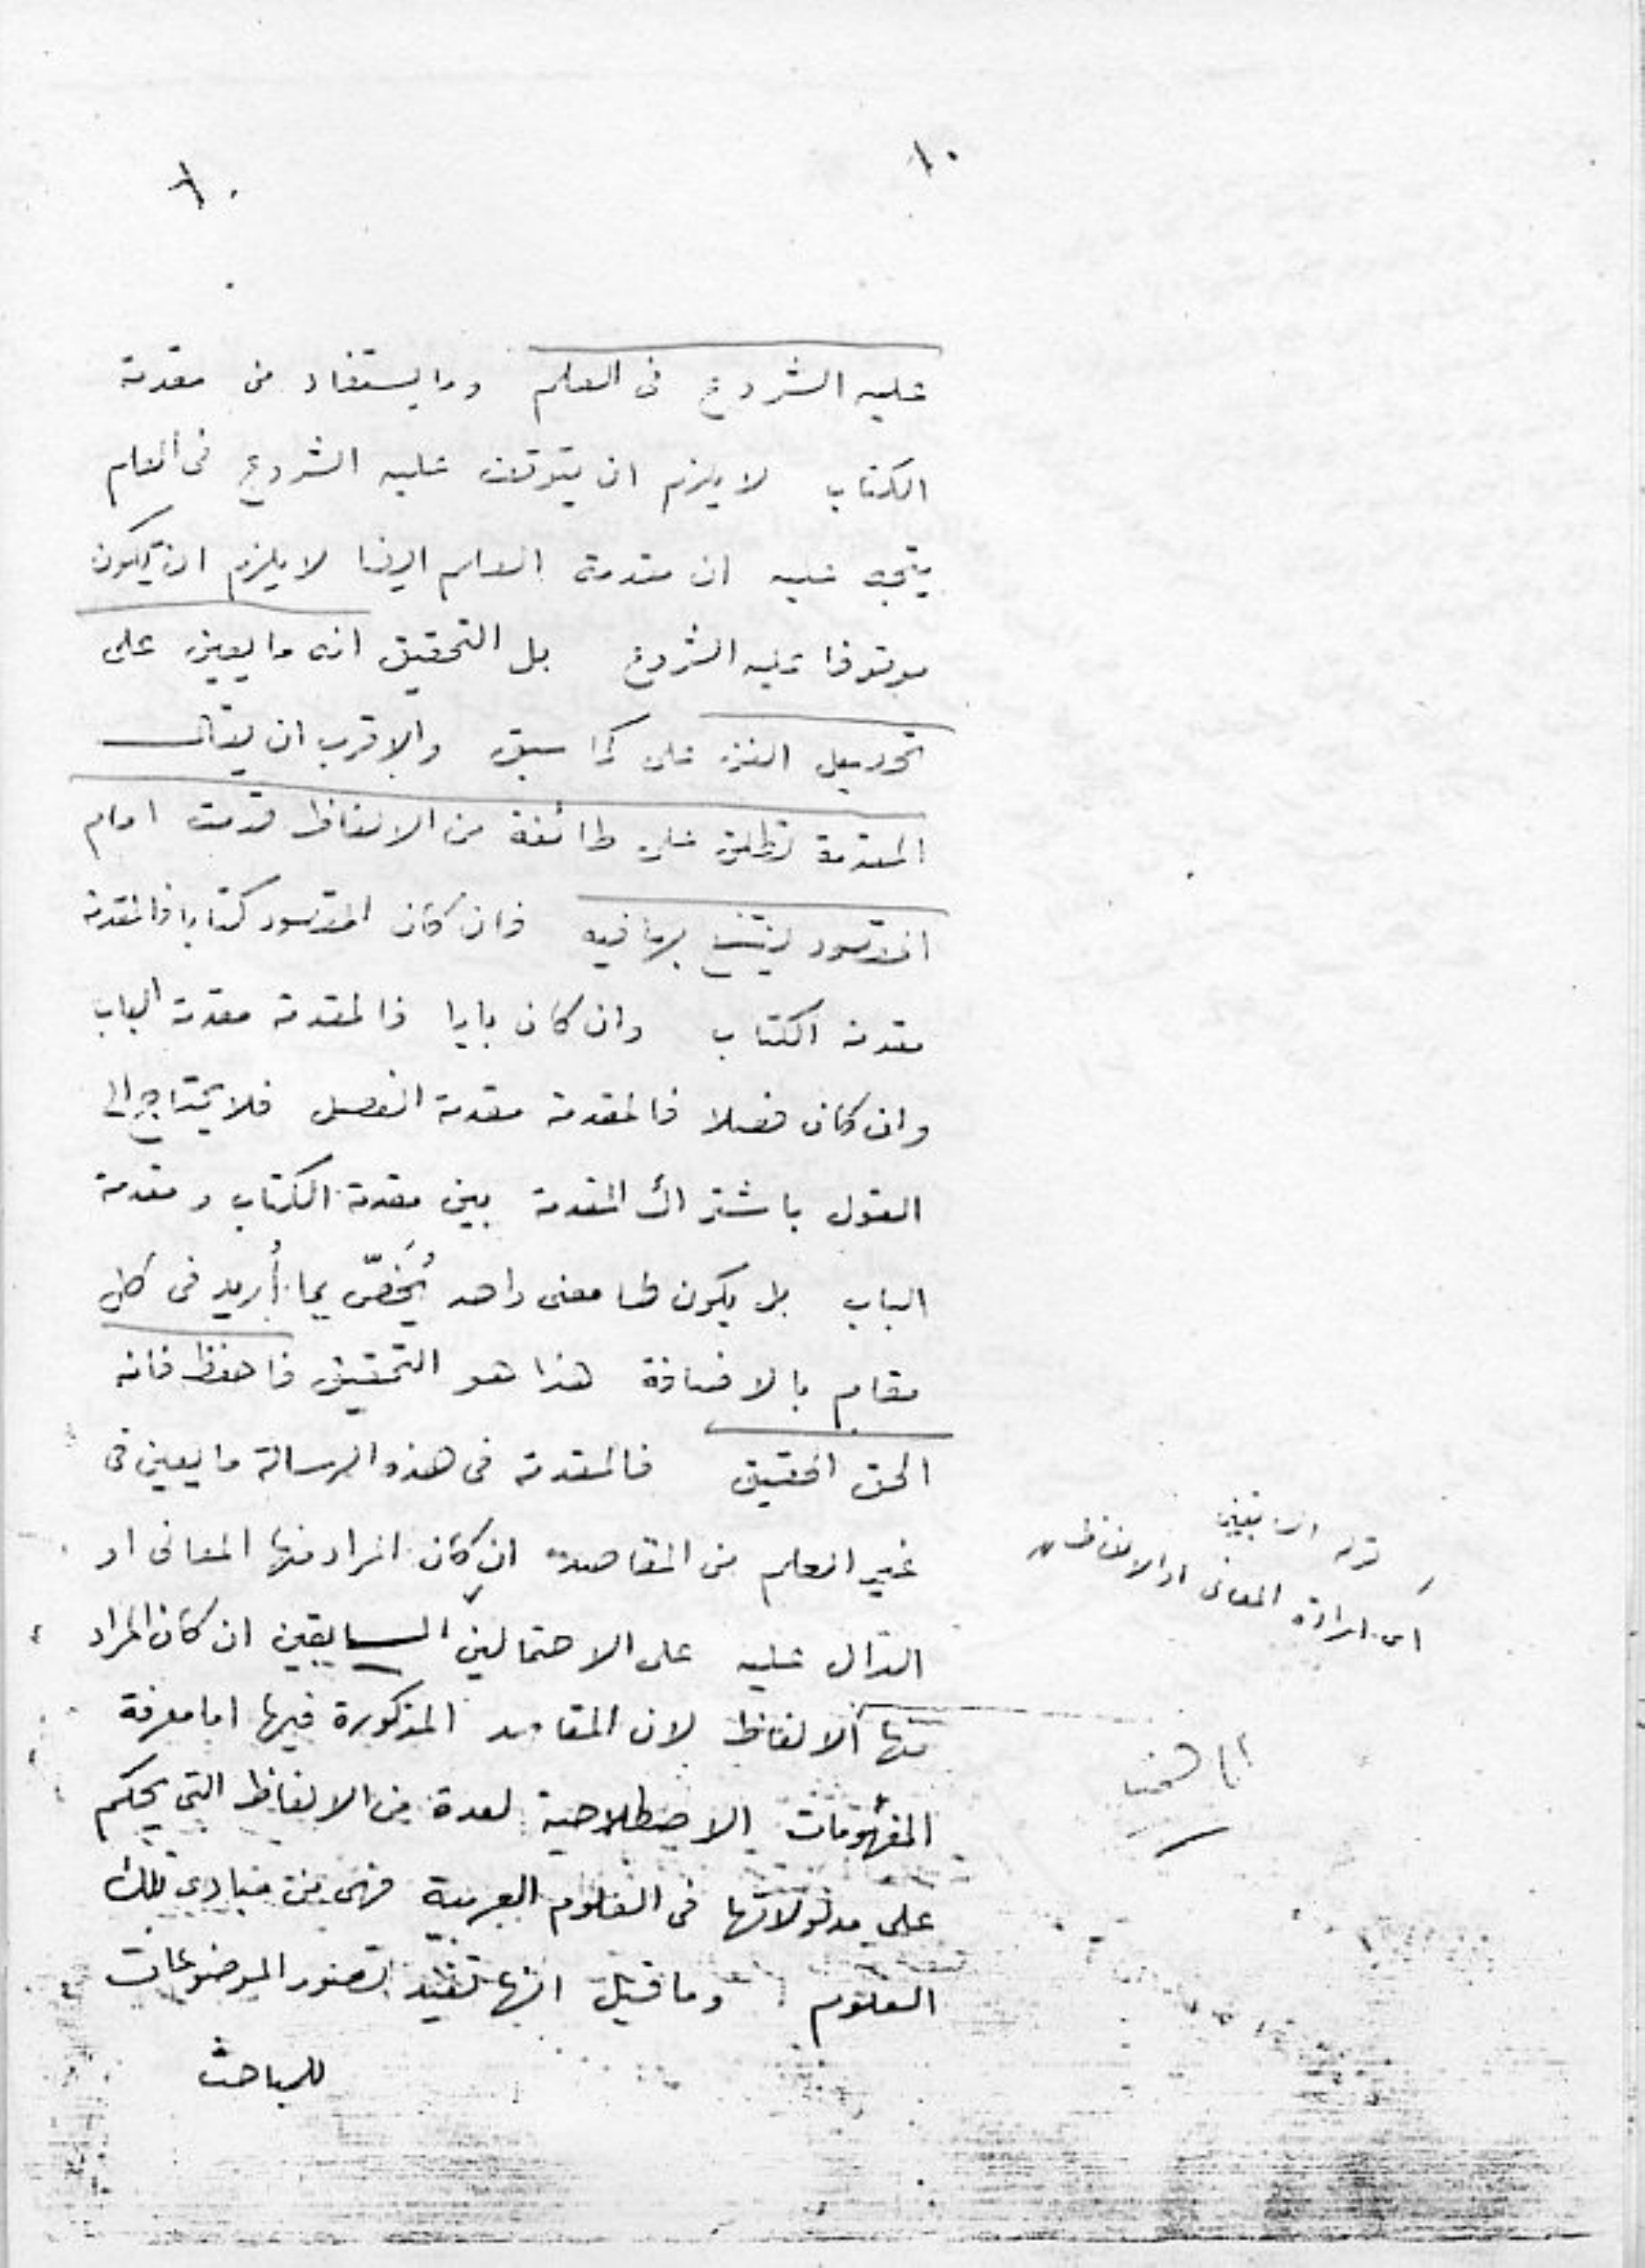 ١٠
١٠
عليه الشروع فى العلم وما يستفاد من مقدمة
الكتاب لا يلزم ان يتوقف عليه الشروع فى العلم
يتجه عليه ان مقدمة العلم ايضا لا يلزم ان يكون
موقوفا عليه الشروع بل التحقيق انه ما يعين على
تحصيل الفن على كما سبق والاقرب ان يقال
المقدمة تطلق على طائفة من الالفاظ قدمت امام
المقصود ينتفع بها فيه فان كان المقصود كتابا فالمقدمة
مقدمة الكتاب وان كان بابا فالمقدمة مقدمة الباب
وان كان فصلا فالمقدمة مقدمة الفصل فلا يحتاج الى
القول باشتراك المقدمة بين مقدمة الكتاب ومقدمة
الباب بل يكون لها معنى واحد يُخَصّ بما أُريد فى كل
مقام بالاضافة هذا هو التحقيق فاحفظ فانه
الحق الحقيق فالمقدمة فى هذه الرسالة ما يعين فى
غير العلم من المقاصد ان كان المراد منها المعانى او
الدال عليه على الاحتمالين السابقين ان كان المراد
منها الالفاظ لان المقاصد المذكورة فيها اما معرفة
المفهومات الاصطلاحية لعدة من الالفاظ التى يحكم
على مدلولاتها فى العلوم العربية فهى من مبادى تلك
العلوم وما قيل انها تفيد تصور الموضوعات
للمباحث
قوله السابقين
اى ارادة المعانى او الالفاظ